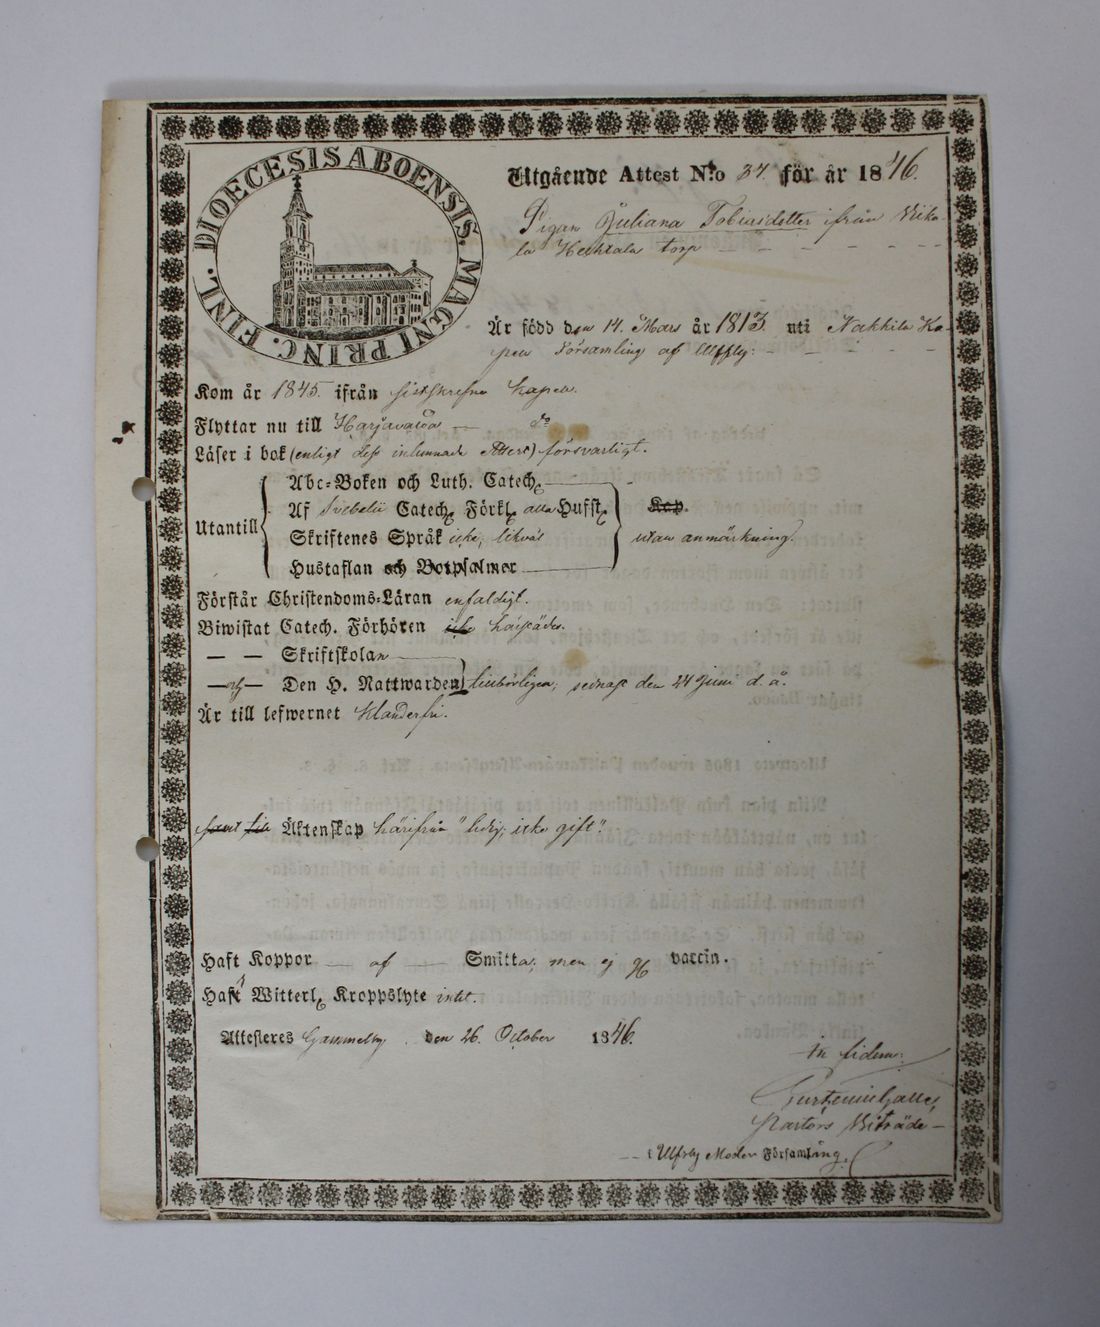 DIOECESIS ABOENSIS. MAGNI PRINC. FINL.
Utgående Attest N:o 37. för år 1846.
Pigan Juliana Tobiasdotter ifrån Wiko-
la torp
Är född den 14. Mars år 1813. uti Nakkila Ka-
pell Församling af Ulfsby.
Kom år 1845. ifrån sistskrefne kapell.
Flyttar nu till Harjavalda d:o
Läser i bok (enligt dess inlemnade Attest) försvarligt.
Utantill
Abc-Boken och Luth. Catech.
Af Svebelii Catech. Förkl. alla Husst.
Skriftenes Språk icke, likväl
Hustaflan och Botpsalmer
Kap.
utan anmärkning.
Förstår Christendoms-Läran enfaldigt.
Biwistat Catech. Förhören icke
— — Skriftskolan
— och — Den H. Nattwarden senast den 24 Juni d. å.
Är till lefwernet klanderfri.
samt till Äktenskap härifrån "ledig, icke gift".
Haft Koppor — af — Smitta, men ej vaccin.
Haft Witterl. Kroppslyte intet.
Attesteres Gammelby. den 26. October 1846.
In fidem:
Pastors Biträde
i Ulfsby Moder Församling.